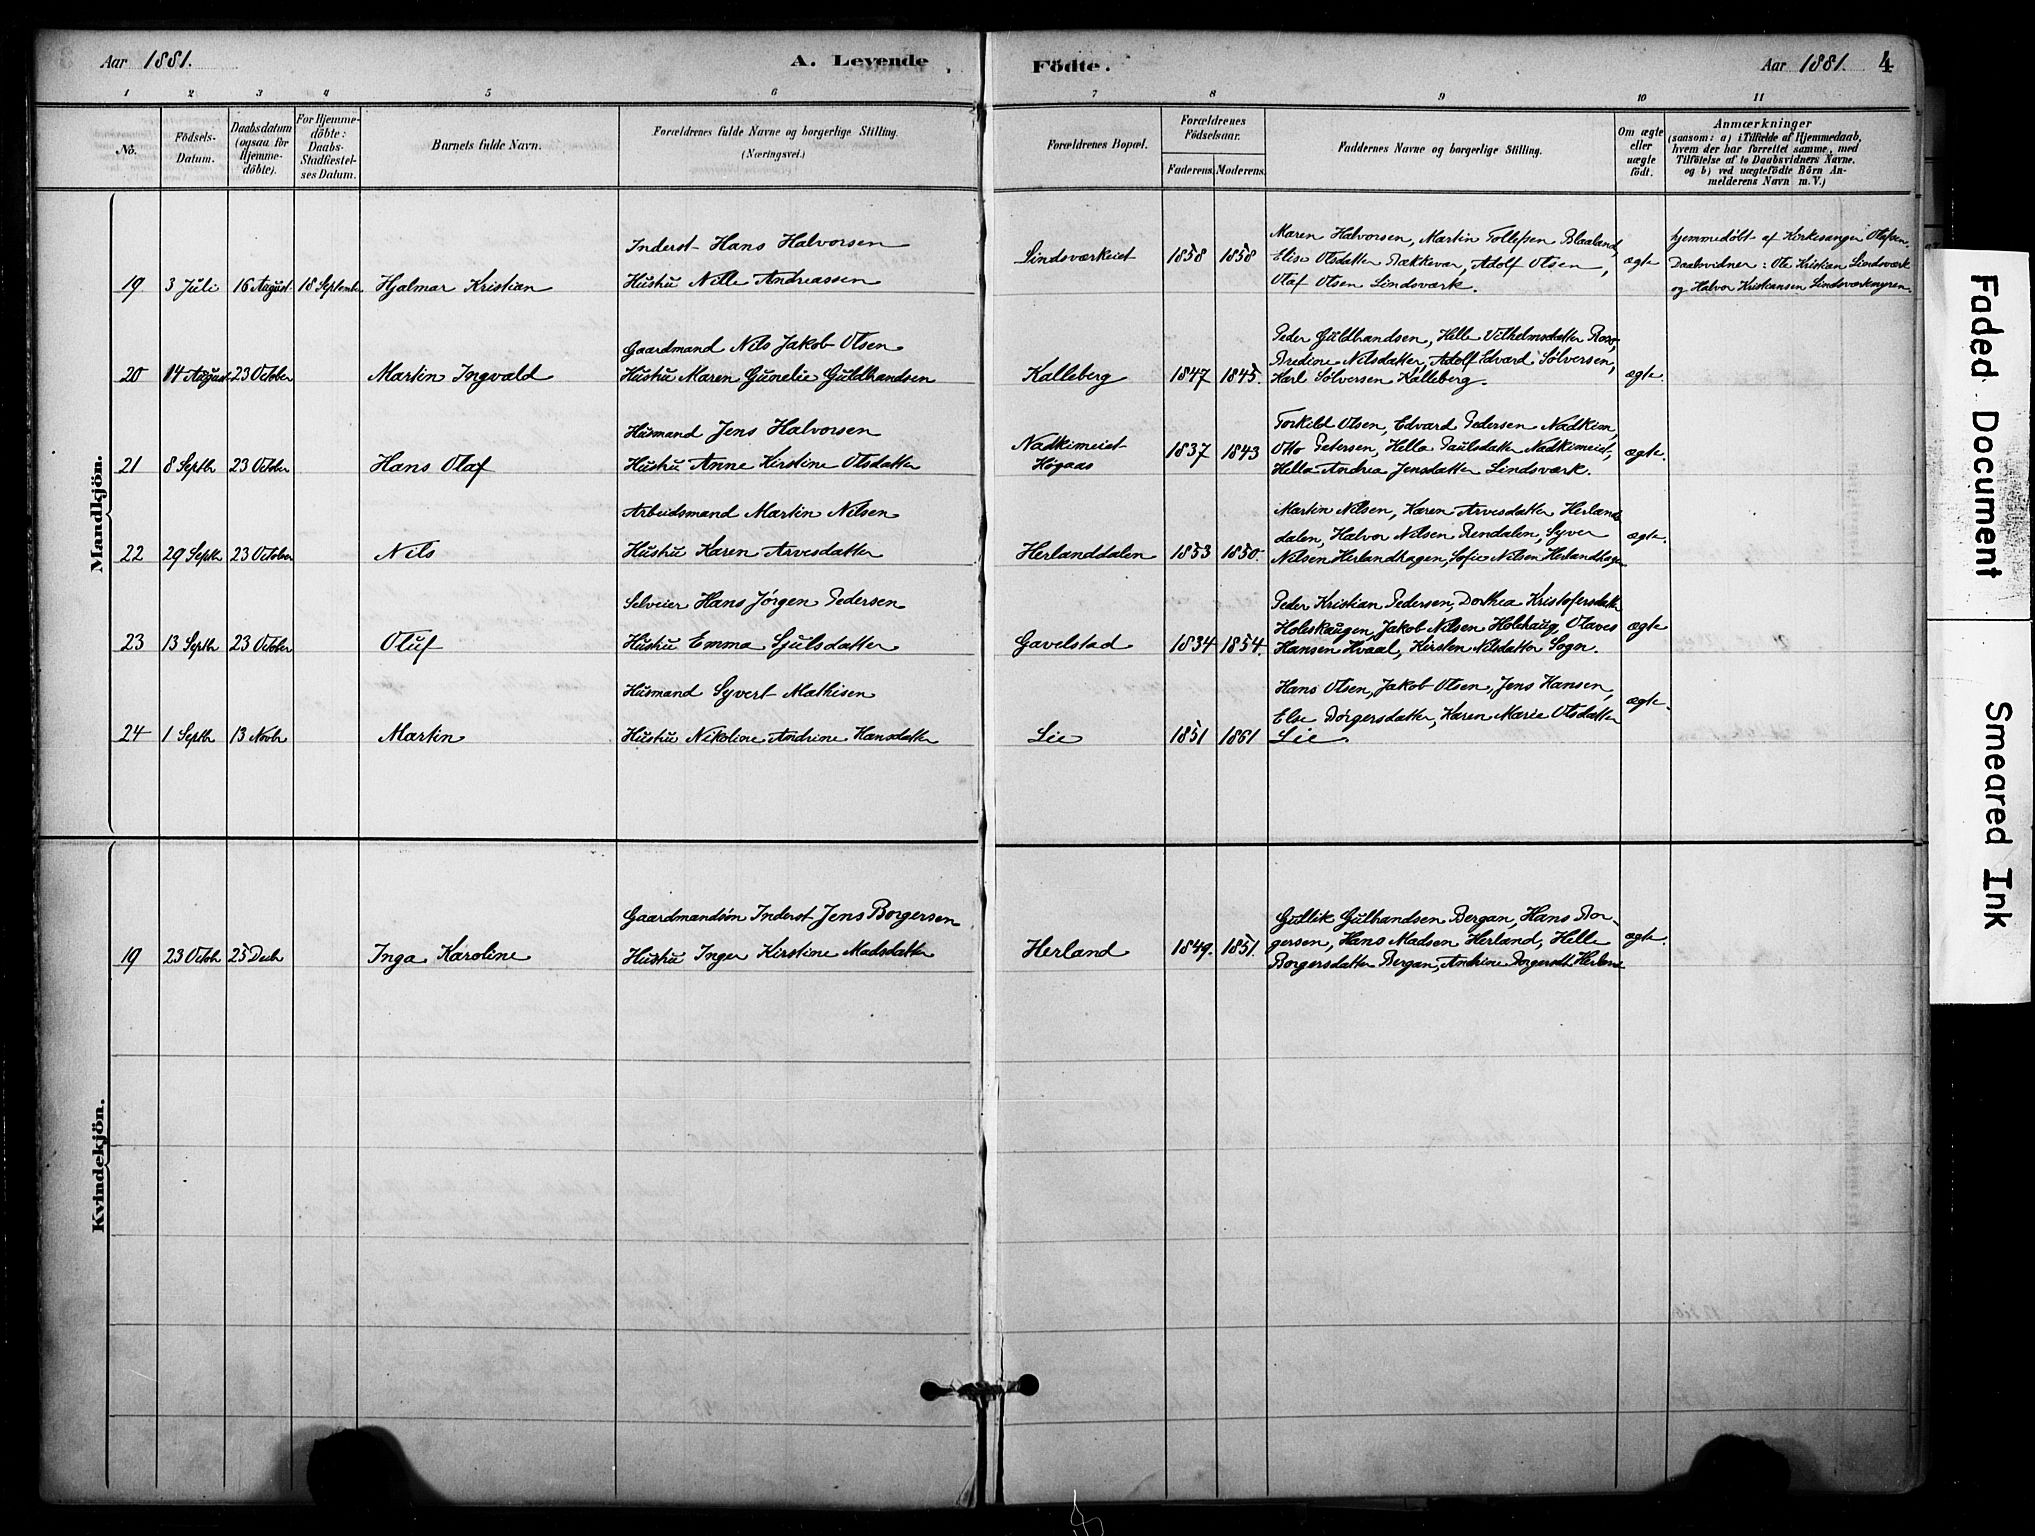 Aar 1881.
A. Levende
Födte.
Aar 1881.
4
1 2 3 4 5 6 7 8 9 10 11
No.
Födsels-
Datum.
Daabsdatum
(ogsaa for
Hjemme-
döbte).
For Hjemme-
döbte:
Daabs-
Stadfæstel-
ses Datum.
Barnets fulde Navn.
Forældrenes fulde Navne og borgerlige Stilling.
(Næringsvei.)
Forældrenes Bopæl.
Forældrenes
Födselsaar.
Faderens. Moderens.
Faddernes Navne og borgerlige Stilling.
Om ægte
eller
uægte
födt.
Anmærkninger
(saasom: a) i Tilfælde af Hjemmedaab,
hvem der har forrettet samme, med
Tilföielse af to Daabsvidners Navne.
og b) ved uægtefödte Börn An-
melderens Navn m. V.)
Mandkjön.
19 3 Juli 16 August 18 Septembr Hjalmar Kristian
Inderst Hans Halvorsen
Hustru Nille Andreassen
Lindsværkeiet 1858 1858
Maren Halvorsen, Martin Tollefsen Blaaland,
Elise Olsdatter Bækkevar, Adolf Olsen,
Olaf Olsen Lindsværk.
ægte
hjemmedøbt af Kirkesanger Olafsen.
Daabsvidner: Ole Kristian Lindsværk
og Halvor Kristiansen Lindsværkmyren.
20 14 August 23 October Martin Ingvald
Gaardmand Nils Jakob Olsen
Hustru Maren Gunelie Guldbrandsen
Kalleberg 1847 1845.
Peder Guldbrandsen, Helle Vilhelmsdatter Roso,
Bredine Nilsdatter, Adolf Edvard Sølversen,
Karl Sølversen Kalleberg.
ægte.
21 8 Septbr 23 October Hans Olaf
Husmand Jens Halvorsen
Hustru Anne Kirstine Olsdatter
Nadkimeiet
Høgaas
1837 1843
Torkild Olsen, Edvard Pedersen Nadkim,
Otto Petersen, Hella Paulsdatter Nadkimeiet,
Hella Andrea Jensdatter Lindsværk.
ægte.
22 29 Septbr 23 October Nils
Arbeidsmand Martin Nilsen
Hustru Karen Arvesdatter
Herlanddalen 1853 1850.
Martin Nilsen, Karen Arvesdatter Herland-
dalen, Halvor Nilsen Rendalen, Syver
Nilsen Herlandhagen, Sofie Nilsen Herlandhagen
ægte.
23 13 Septbr 23 October Oluf
Selveier Hans Jørgen Pedersen
Hustru Emma Sjulsdatter
Gavelstad 1834 1854.
Peder Kristian Pedersen, Dorthea Kristofersdatter
Holeskaugen, Jakob Nilsen Holehaug, Olaves
Hansen Hvaal, Kirsten Nilsdatter Sogn.
ægte
24 1 Septbr 13 Novbr Martin
Husmand Syvert Mathisen
Hustru Nikoline Andrine Hansdatter
Lie 1851 1861
Hans Olsen, Jakob Olsen, Jens Hansen,
Else Børgersdatter, Karen Marie Olsdatter
Lie.
ægte.
Kvindekjön.
19 23 Octob. 25 Decbr Inga Karoline
Gaardmandsøn Inderst Jens Borgersen
Hustru Inger Kirstine Madsdatter
Herland 1849. 1851.
Gullik Gulbrandsen Bergan, Hans Bor-
gersen, Hans Madsen Herland, Helle
Borgersdatter Bergan, Andrine Borgersdt Herland
ægte.
Faded Document
Smeared Ink